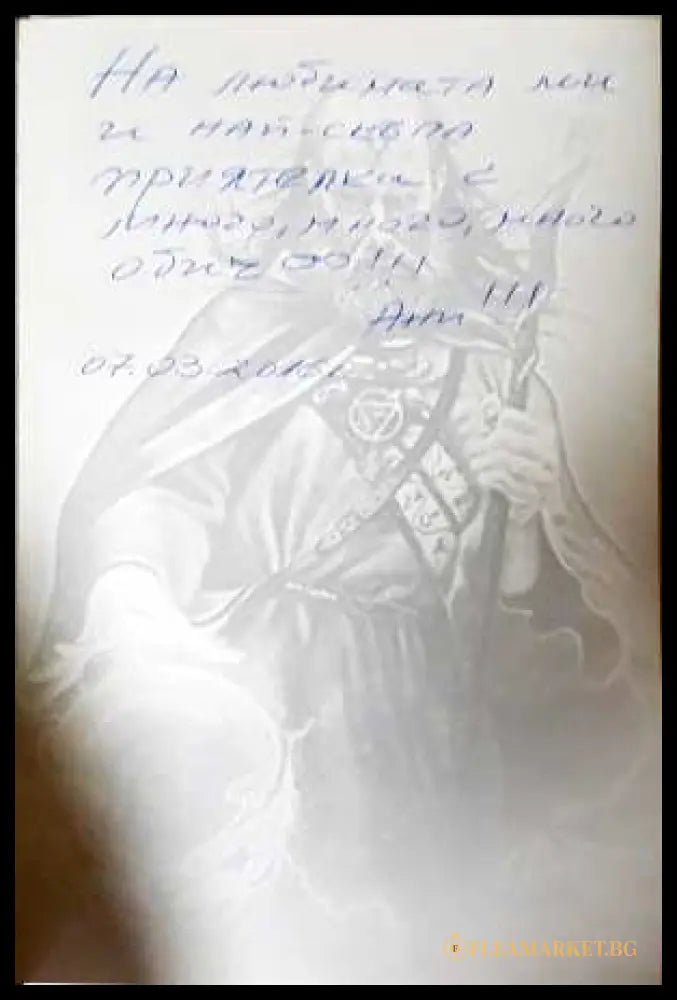 На любимата ми
и най-скъпа
приятелка с
много, много, много
обич
!!!
Ани
07.03.201
FLEAMARKET.BG